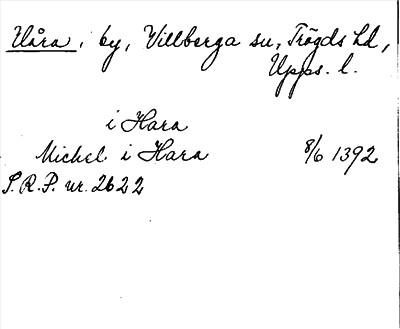 Håra, by, Villberga sn, Trögds hd,
Upps. l.
i Hara
Michel i Hara 8/6 1392
S.R.P. nr. 2622